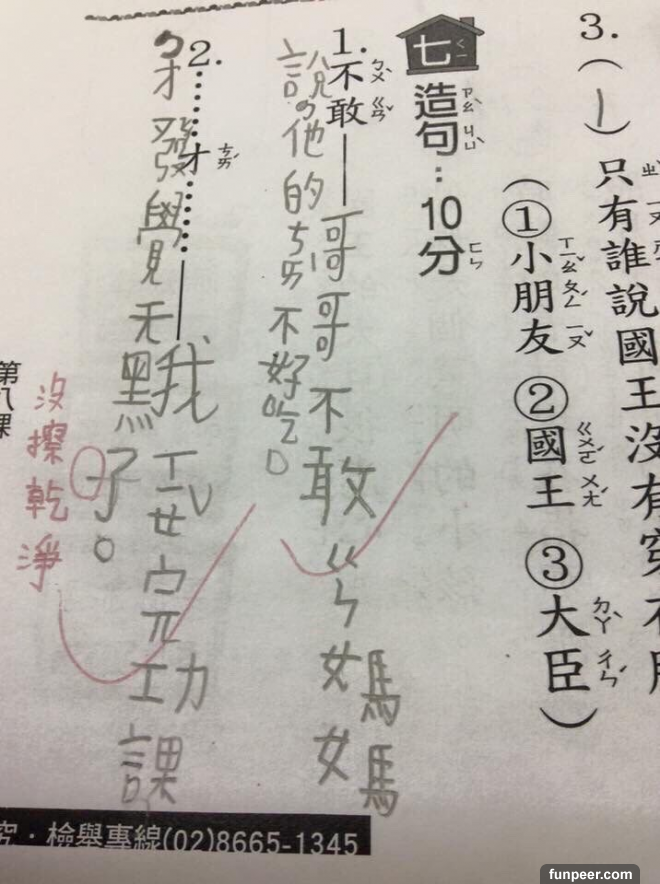 3.(1)只有誰說國王沒有穿不
(①小朋友 ②國王 ③大臣)
七 造句：10分
1.不敢——哥哥不敢ㄍㄣ媽媽
說他的ㄘㄞ不好吃。
2.……才……——我完功課
才發覺天黑了。
沒擦乾淨
第八課
究・檢舉專線(02)8665-1345
funpeer.com